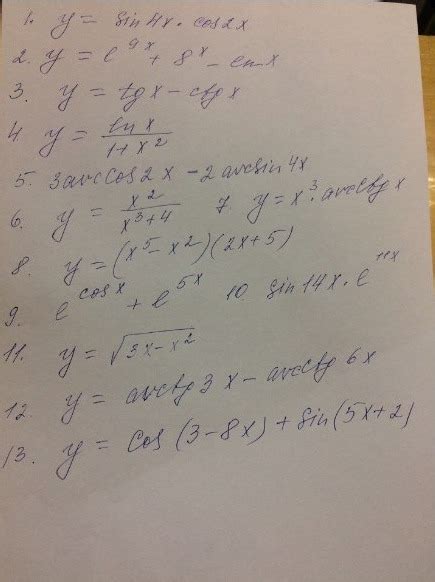 1. y = sin4x · cos2x
2. y = e^9x + 8^x - lnx
3. y = tgx - ctgx
4. y = lnx / 1+x^2
5. 3arccos2x - 2arcsin4x
6. y = x^2 / x^3+4 7. y = x^3 · arcctgx
8. y = (x^5 - x^2)(2x+5)
9. e^cosx + e^5x 10 sin14x · e^11x
11. y = √3x-x^2
12. y = arctg3x - arcctg6x
13. y = cos(3-8x) + sin(5x+2)